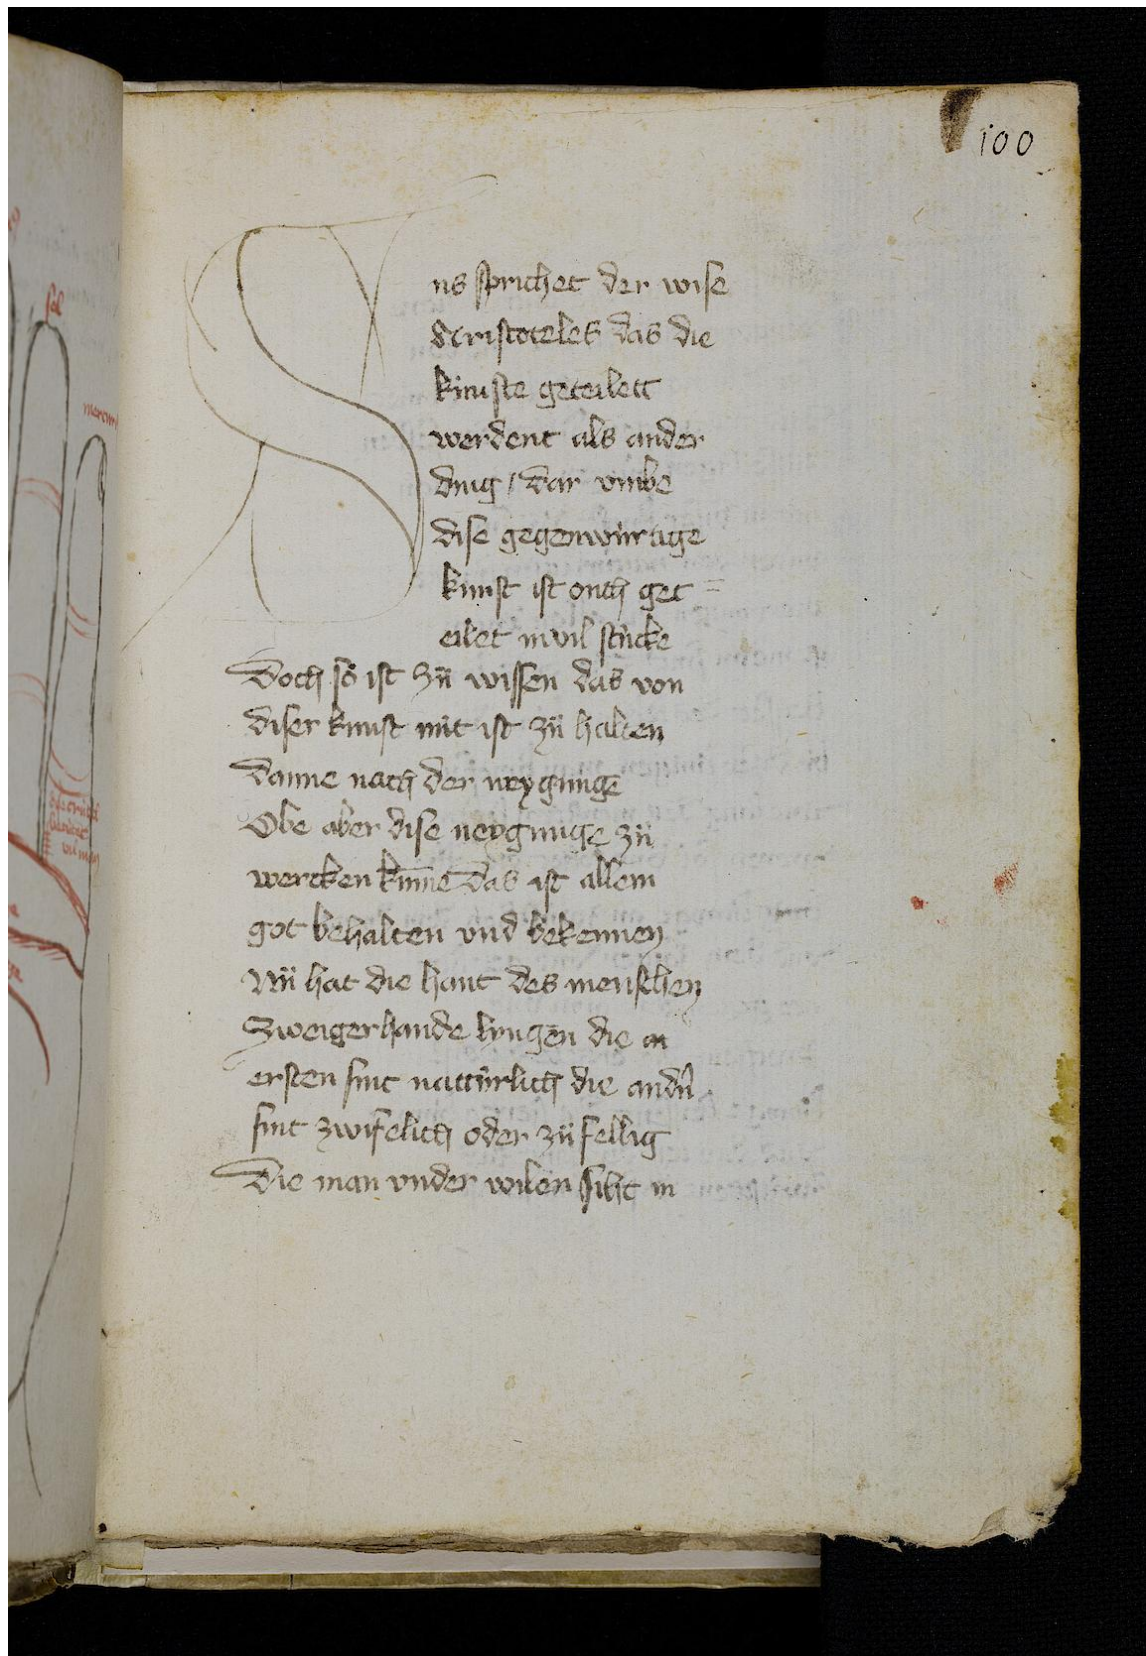 100
ns sprichet der wise
Aristoteles das die
künste geteilett
werdent als ander
ding / dar vmbe
dise gegenwürtige
kunst ist ouch get=
eilet in vil stücke
Doch so ist zü wissen das von
diser kunst nüt ist zü halten
Danne nach der neygunge
Obe aber dise neygunge zü
wercken kūme das ist allein
got behalten vnd bekennen
Nü hat die hant des menschen
Zweigerhande lyngen die
ersten sint nattürlich die
sint zwifelich oder zü fellig
Die man vnder wilen siht in
sol